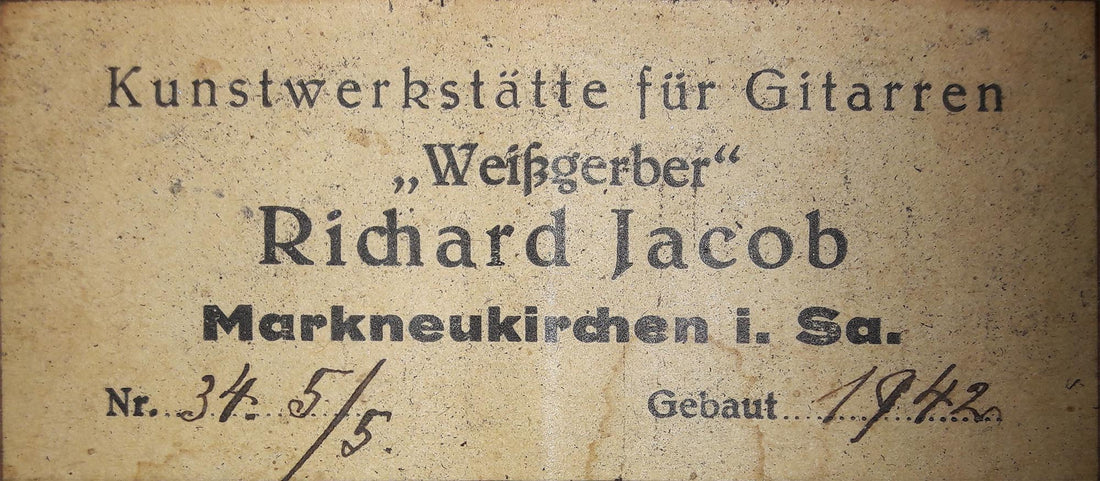 Kunstwerkstätte für Gitarren
„Weißgerber“
Richard Jacob
Markneukirchen i. Sa.
Nr. 34. 5/5. Gebaut 1942